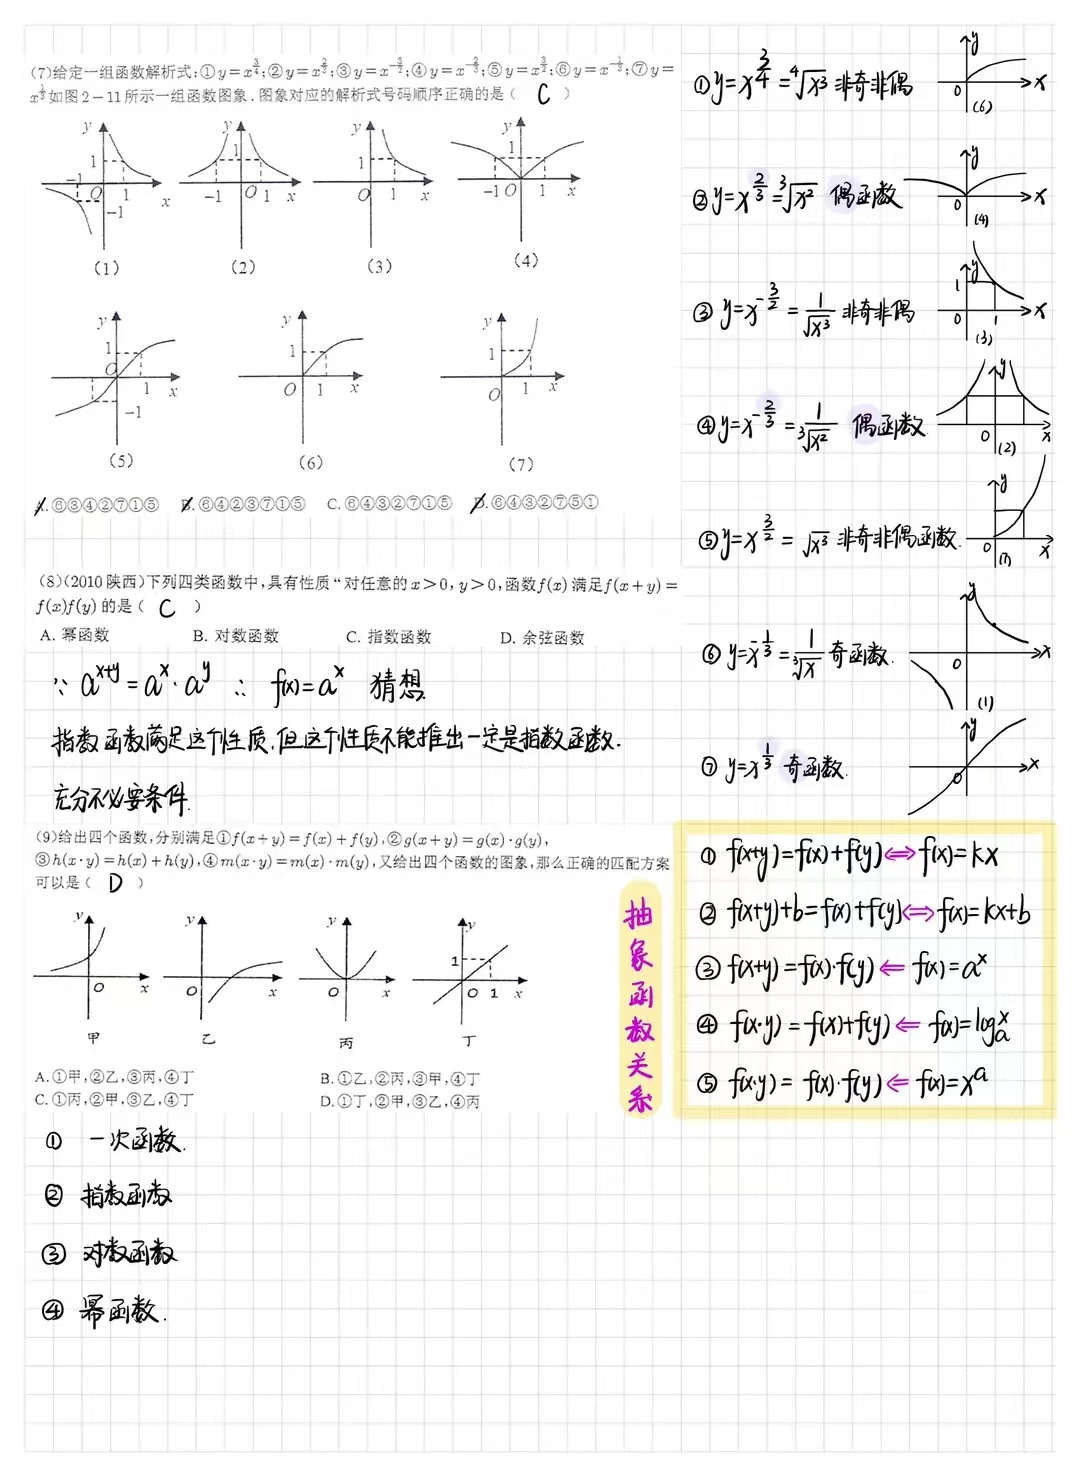 (7)给定一组函数解析式:①y=x^{3/4};②y=x^{2/3};③y=x^{-3/2};④y=x^{-2/3};⑤y=x^{3/2};⑥y=x^{-1/3};⑦y=
x^{1/3}如图2-11所示一组函数图象.图象对应的解析式号码顺序正确的是( C )
y y y y
1 1 1 1
-1 O 1 x -1 O 1 x O 1 x -1 O 1 x
-1
(1) (2) (3) (4)
y y y
1 1 1
O 1 x O 1 x O 1 x
-1
(5) (6) (7)
A.⑥③④②⑦①⑤ B.⑥④②③⑦①⑤ C.⑥④③②⑦①⑤ D.⑥④③②⑦⑤①
(8)(2010陕西)下列四类函数中,具有性质“对任意的x>0,y>0,函数f(x)满足f(x+y)=
f(x)f(y)的是( C )
A.幂函数 B.对数函数 C.指数函数 D.余弦函数
∵ a^{x+y}=a^x·a^y ∴ f(x)=a^x 猜想.
指数函数满足这个性质,但这个性质不能推出一定是指数函数.
充分不必要条件.
(9)给出四个函数,分别满足①f(x+y)=f(x)+f(y),②g(x+y)=g(x)·g(y),
③h(x·y)=h(x)+h(y),④m(x·y)=m(x)·m(y),又给出四个函数的图象,那么正确的匹配方案
可以是( D )
y y y y
1
O x O x O x O 1 x
甲 乙 丙 丁
A.①甲,②乙,③丙,④丁 B.①乙,②丙,③甲,④丁
C.①丙,②甲,③乙,④丁 D.①丁,②甲,③乙,④丙
① 一次函数.
② 指数函数
③ 对数函数
④ 幂函数.
①y=x^{3/4}=⁴√x³ 非奇非偶
y
0 x
(6)
②y=x^{2/3}=³√x² 偶函数
y
0 x
(4)
③y=x^{-3/2}=1/√x³ 非奇非偶
y
1
0 1 x
(3)
④y=x^{-2/3}=1/³√x² 偶函数.
y
0 x
(2)
⑤y=x^{3/2}=√x³ 非奇非偶函数.
y
0 x
(7)
⑥y=x^{-1/3}=1/³√x 奇函数.
y
0 x
(1)
⑦y=x^{1/3} 奇函数.
y
0 x
抽象函数关系
① f(x+y)=f(x)+f(y)⇔f(x)=kx
② f(x+y)+b=f(x)+f(y)⇔f(x)=kx+b
③ f(x+y)=f(x)·f(y)⇐f(x)=a^x
④ f(x·y)=f(x)+f(y)⇐f(x)=log_a^x
⑤ f(x·y)=f(x)·f(y)⇐f(x)=x^a